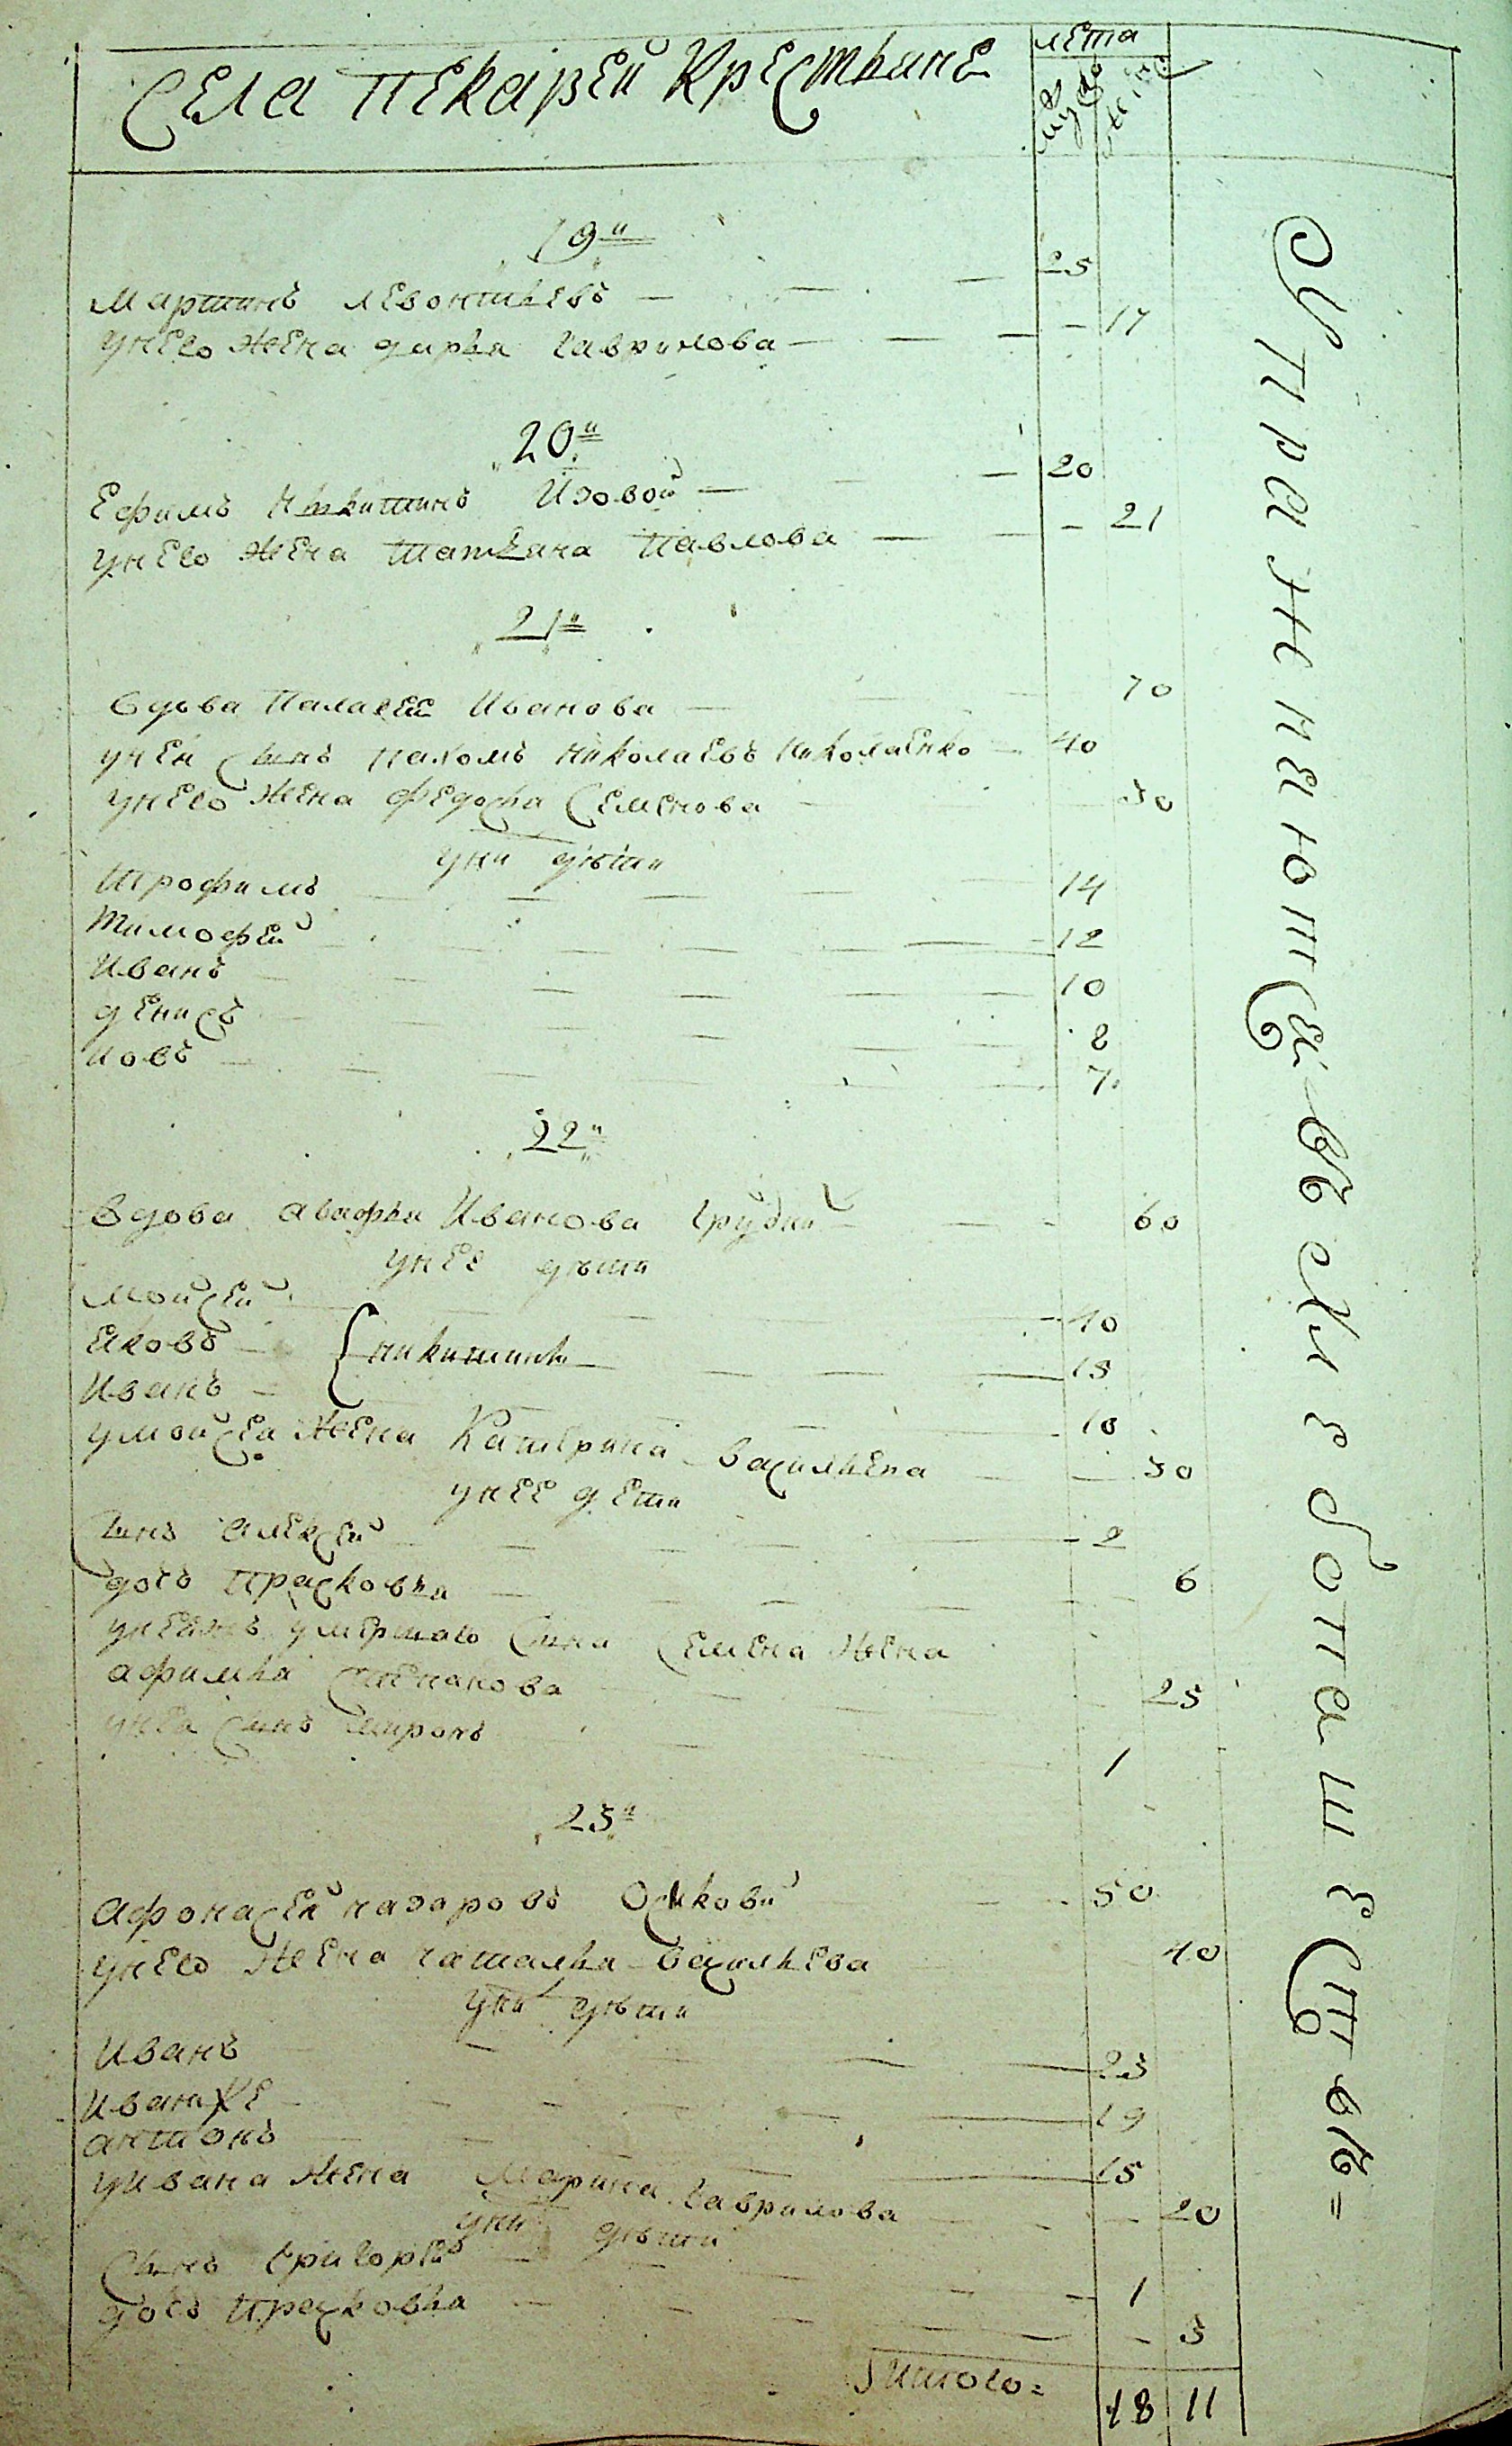 Села Пекарей Крестьяне
лета
муж
жен
19й
Мартинъ Левонтьевъ — 25
унего жена дарья Гаврилова — 17
20й
Ефимъ Никитинъ Изовой — 20
унего жена Татьяна Павлова — 21
21й
вдова Палагея Иванова — 70
уней сынъ пахомъ николаевъ николаенко — 40
унего жена федосья Семенова — 30
уни дѣти
Трофимъ 14
Тимофей 12
Иванъ 10
денисъ 8
иовъ 7
22й
Вдова агафья Иванова Грудий 60
унее дѣти
Мойсей 40
Яковъ { никитини 18
Иванъ 10
умойсея жена Катерина васильева 30
унее дети
Сынъ алексей 2
дочь Прасковья 6
унеяжъ умершаго Сына Семена жена
афимья Степанова 25
унея Сынъ миронъ 1
23й
Афонасей назаровъ 50
унего жена наталья васильева 40
уни дѣти
Иванъ 23
Иван же 19
антонъ 15
уивана жена Марина Гаврилова 20
уни дѣти
Сынъ Григорей 1
дочь Прасковья 3
Итого = 18 11
Упражняются въ хлебопашествѣ =